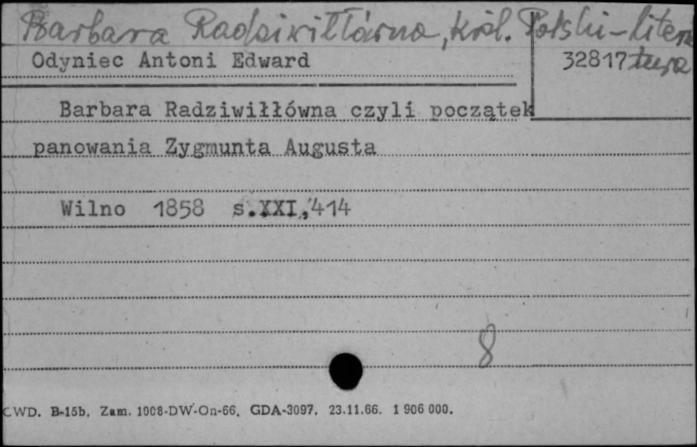 Barbara Radziwiłłówna, król. Polski - litera
Odyniec Antoni Edward
32817 tura
Barbara Radziwiłłówna czyli początek
panowania Zygmunta Augusta
Wilno 1858 s.XXI,414
8
CWD. B-15b. Zam. 1908-DW-On-66. GDA-3097. 23.11.66. 1 906 000.